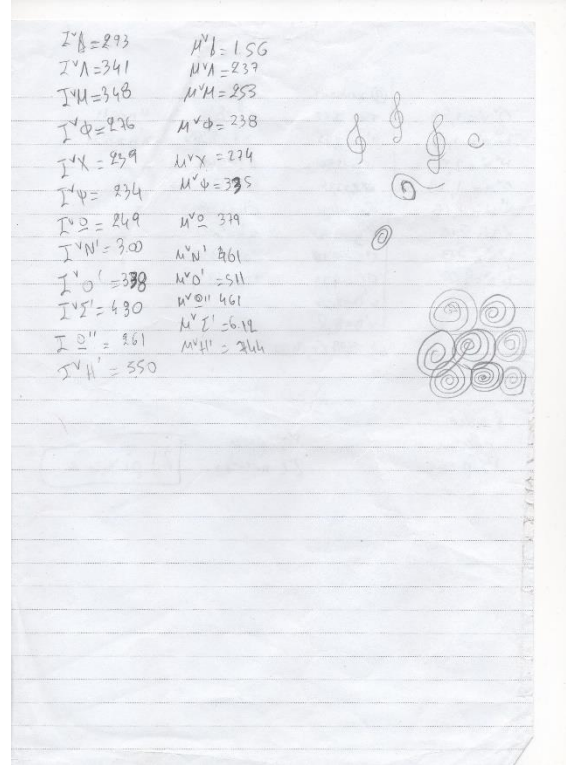 IᵛΛ=341
IᵛM=348
IᵛΦ=276
IᵛX=239
IᵛΨ= 234
IᵛO̲=249
IᵛN'=3.00
IᵛΣ'=430
I O̲''= 261
IᵛH' = 550
MᵛΛ=237
MᵛM=253
MᵛΦ=238
MᵛX=274
MᵛO̲ 379
MᵛN' 461
MᵛO'=511
MᵛO̲'' 461
MᵛΣ'=6.12
MᵛH' = 744